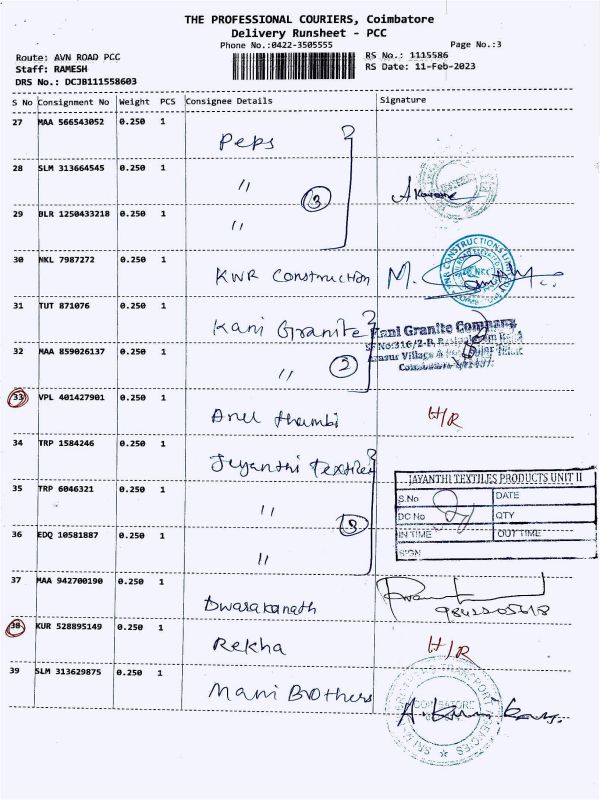 THE PROFESSIONAL COURIERS, Coimbatore
Delivery Runsheet - PCC
Phone No.:0422-3505555
Page No.:3
Route: AVN ROAD PCC
RS No.: 1115586
Staff: RAMESH
RS Date: 11-Feb-2023
DRS No.: DCJB111558603
S No Consignment No Weight PCS Consignee Details Signature
27 MAA 566543052 0.250 1 Peps
28 SLM 313664545 0.250 1 "
3
29 BLR 1250433218 0.250 1 "
30 NKL 7987272 0.250 1 KWR Construction
31 TUT 871076 0.250 1 Kani Granite
Kani Granite Company
32 MAA 859026137 0.250 1 "
2
33 VPL 401427901 0.250 1 Arul thambi H/R
34 TRP 1584246 0.250 1 Jeyanthi Textiles
JAYANTHI TEXTILES PRODUCTS UNIT II
35 TRP 6046321 0.250 1 "
S.No DATE
DC No QTY
IN TIME OUT TIME
SIGN
36 EDQ 10581887 0.250 1 "
37 MAA 942700190 0.250 1 Dwarakanath
9842205618
38 KUR 528895149 0.250 1 Rekha H/R
39 SLM 313629875 0.250 1 Mani Brothers
COIMBATORE